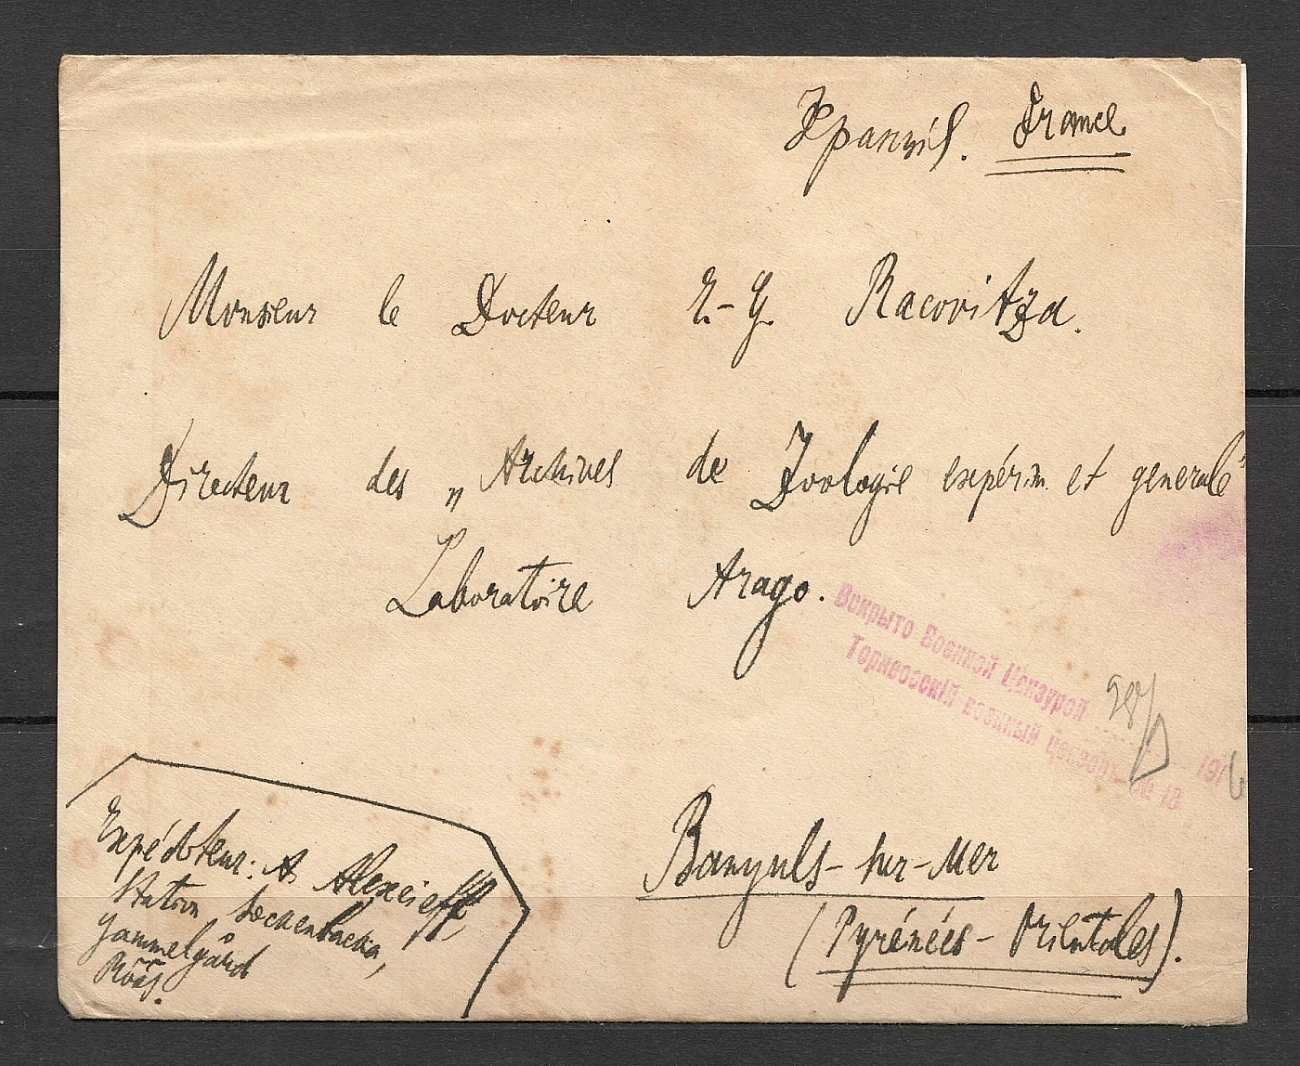 Францiя. France
Monsieur le Docteur E.-G. Racovitza.
Directeur des „Archives de Zoologie expérim. et générale"
Laboratoire Arago.
Вскрыто Военной Цензурой
Торнеосскiй военный цензоръ № 13
191
Banyuls-sur-Mer
(Pyrénées-Orientales).
Expéditeur: A. Alexeieff
Station
Gammelgård